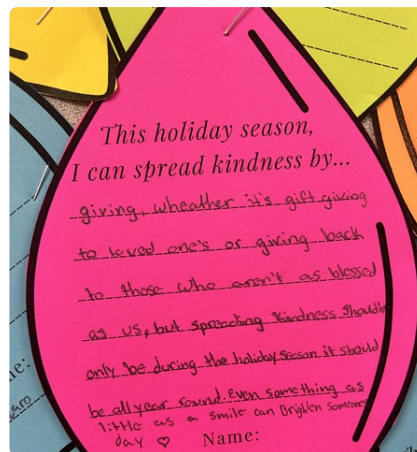 This holiday season,
I can spread kindness by...
giving, wheather it's gift giving
to loved one's or giving back
to those who aren't as blessed
as us, but spreading kindness should
only be during the holiday season it should
be all year round. Even something as
little as a smile can Brighten someones
day ♡
Name: